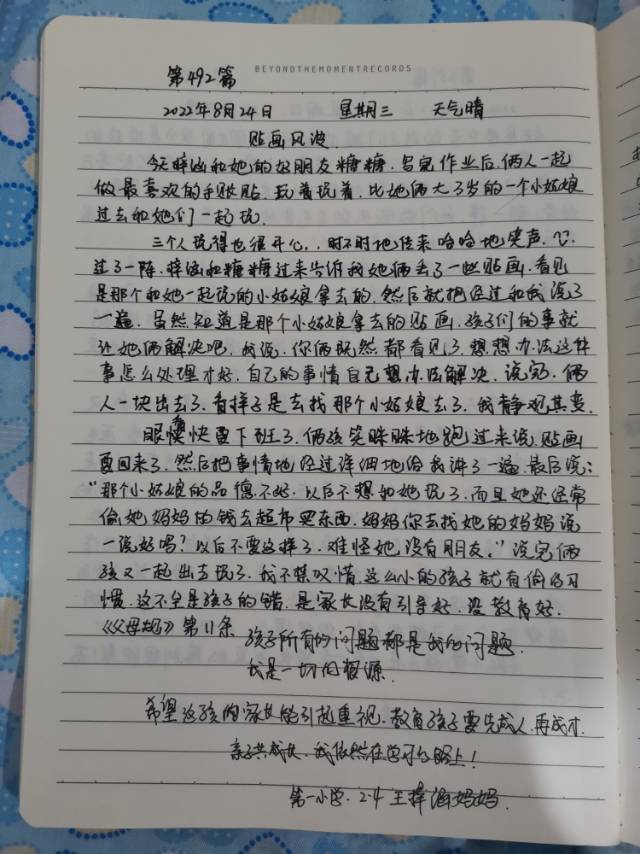 BEYONDTHEMOMENTRECORDS
第492篇
2022年8月24日 星期三 天气晴
贴画风波
今天梓涵和她的好朋友糖糖.写完作业后.俩人一起
做最喜欢的手账贴.玩着玩着.比她俩大3岁的一个小姑娘
过去和她们一起玩.
三个人玩得也很开心,.时不时地传来哈哈地笑声.
过了一阵.梓涵和糖糖过来告诉我她俩丢了一些贴画.看见
是那个和她一起玩的小姑娘拿去的.然后就把经过和我说了
一遍.虽然知道是那个小姑娘拿去的贴画.孩子们的事就
让她俩解决吧.我说.你俩既然都看见了.想想办法这件
事怎么处理才好.自己的事情自己想办法解决.说完.俩
人一块出去了.看样子是去找那个小姑娘去了.我静观其变.
眼看快要下班了.俩孩笑眯眯地跑过来说.贴画
要回来了.然后把事情地经过详细地给我讲了一遍.最后说:
“那个小姑娘的品德不好.以后不想和她玩了.而且她还经常
偷她妈妈的钱去超市买东西.妈妈你去找她的妈妈说
一说好吗?以后不要这样了.难怪她没有朋友.”说完俩
孩又一起出去玩了.我不禁叹惜.这么小的孩子就有偷的习
惯.这不全是孩子的错.是家长没有引导好.没教育好.
《父母规》第11条 孩子所有的问题都是我的问题.
我是一切的根源.
希望这孩的家长能引起重视.教育孩子要先成人.再成才.
亲子共成长.我依然在学习的路上!
第一小学.2.4 王梓涵妈妈.